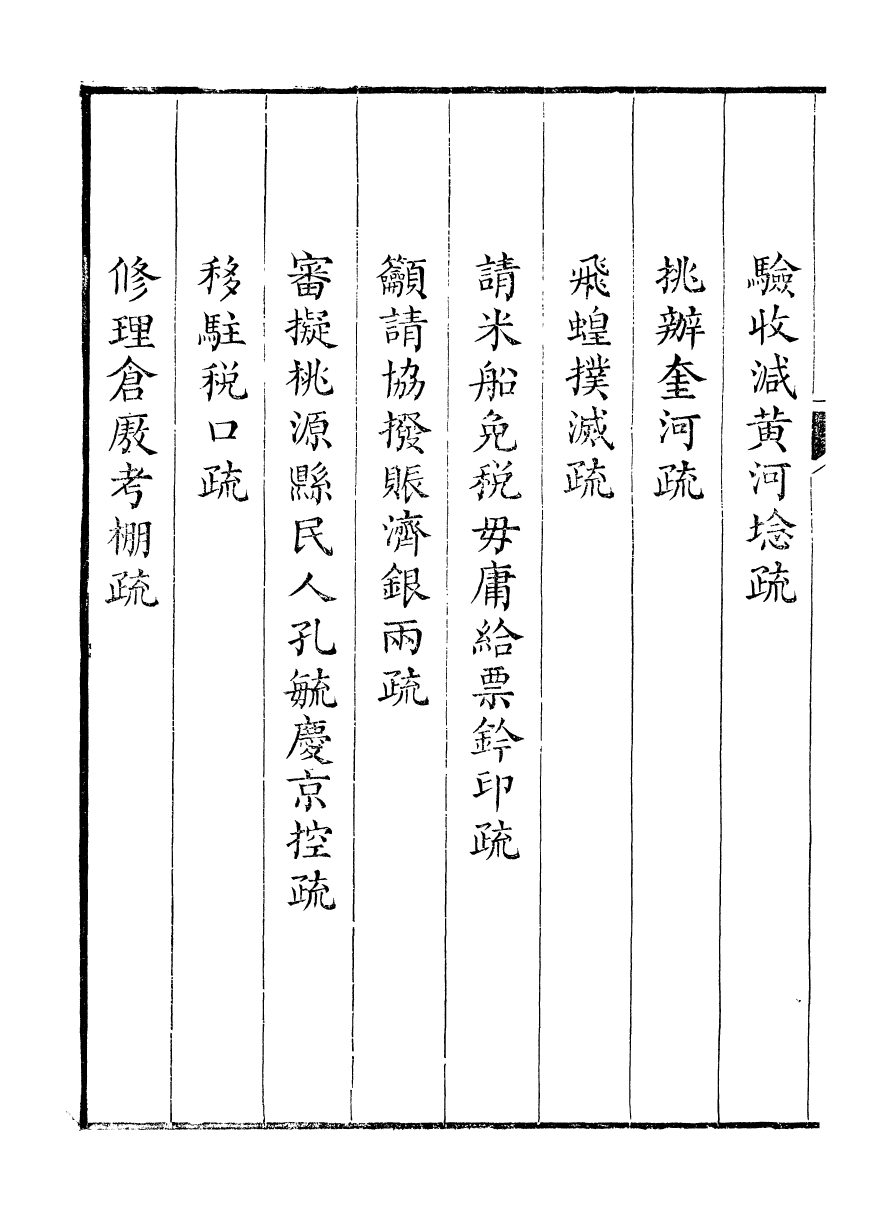 驗收減黃河埝疏
挑辦奎河疏
飛蝗撲滅疏
請米船免稅毋庸給票鈐印疏
籲請協撥賑濟銀兩疏
審擬桃源縣民人孔毓慶京控疏
移駐稅口疏
修理倉廒考棚疏